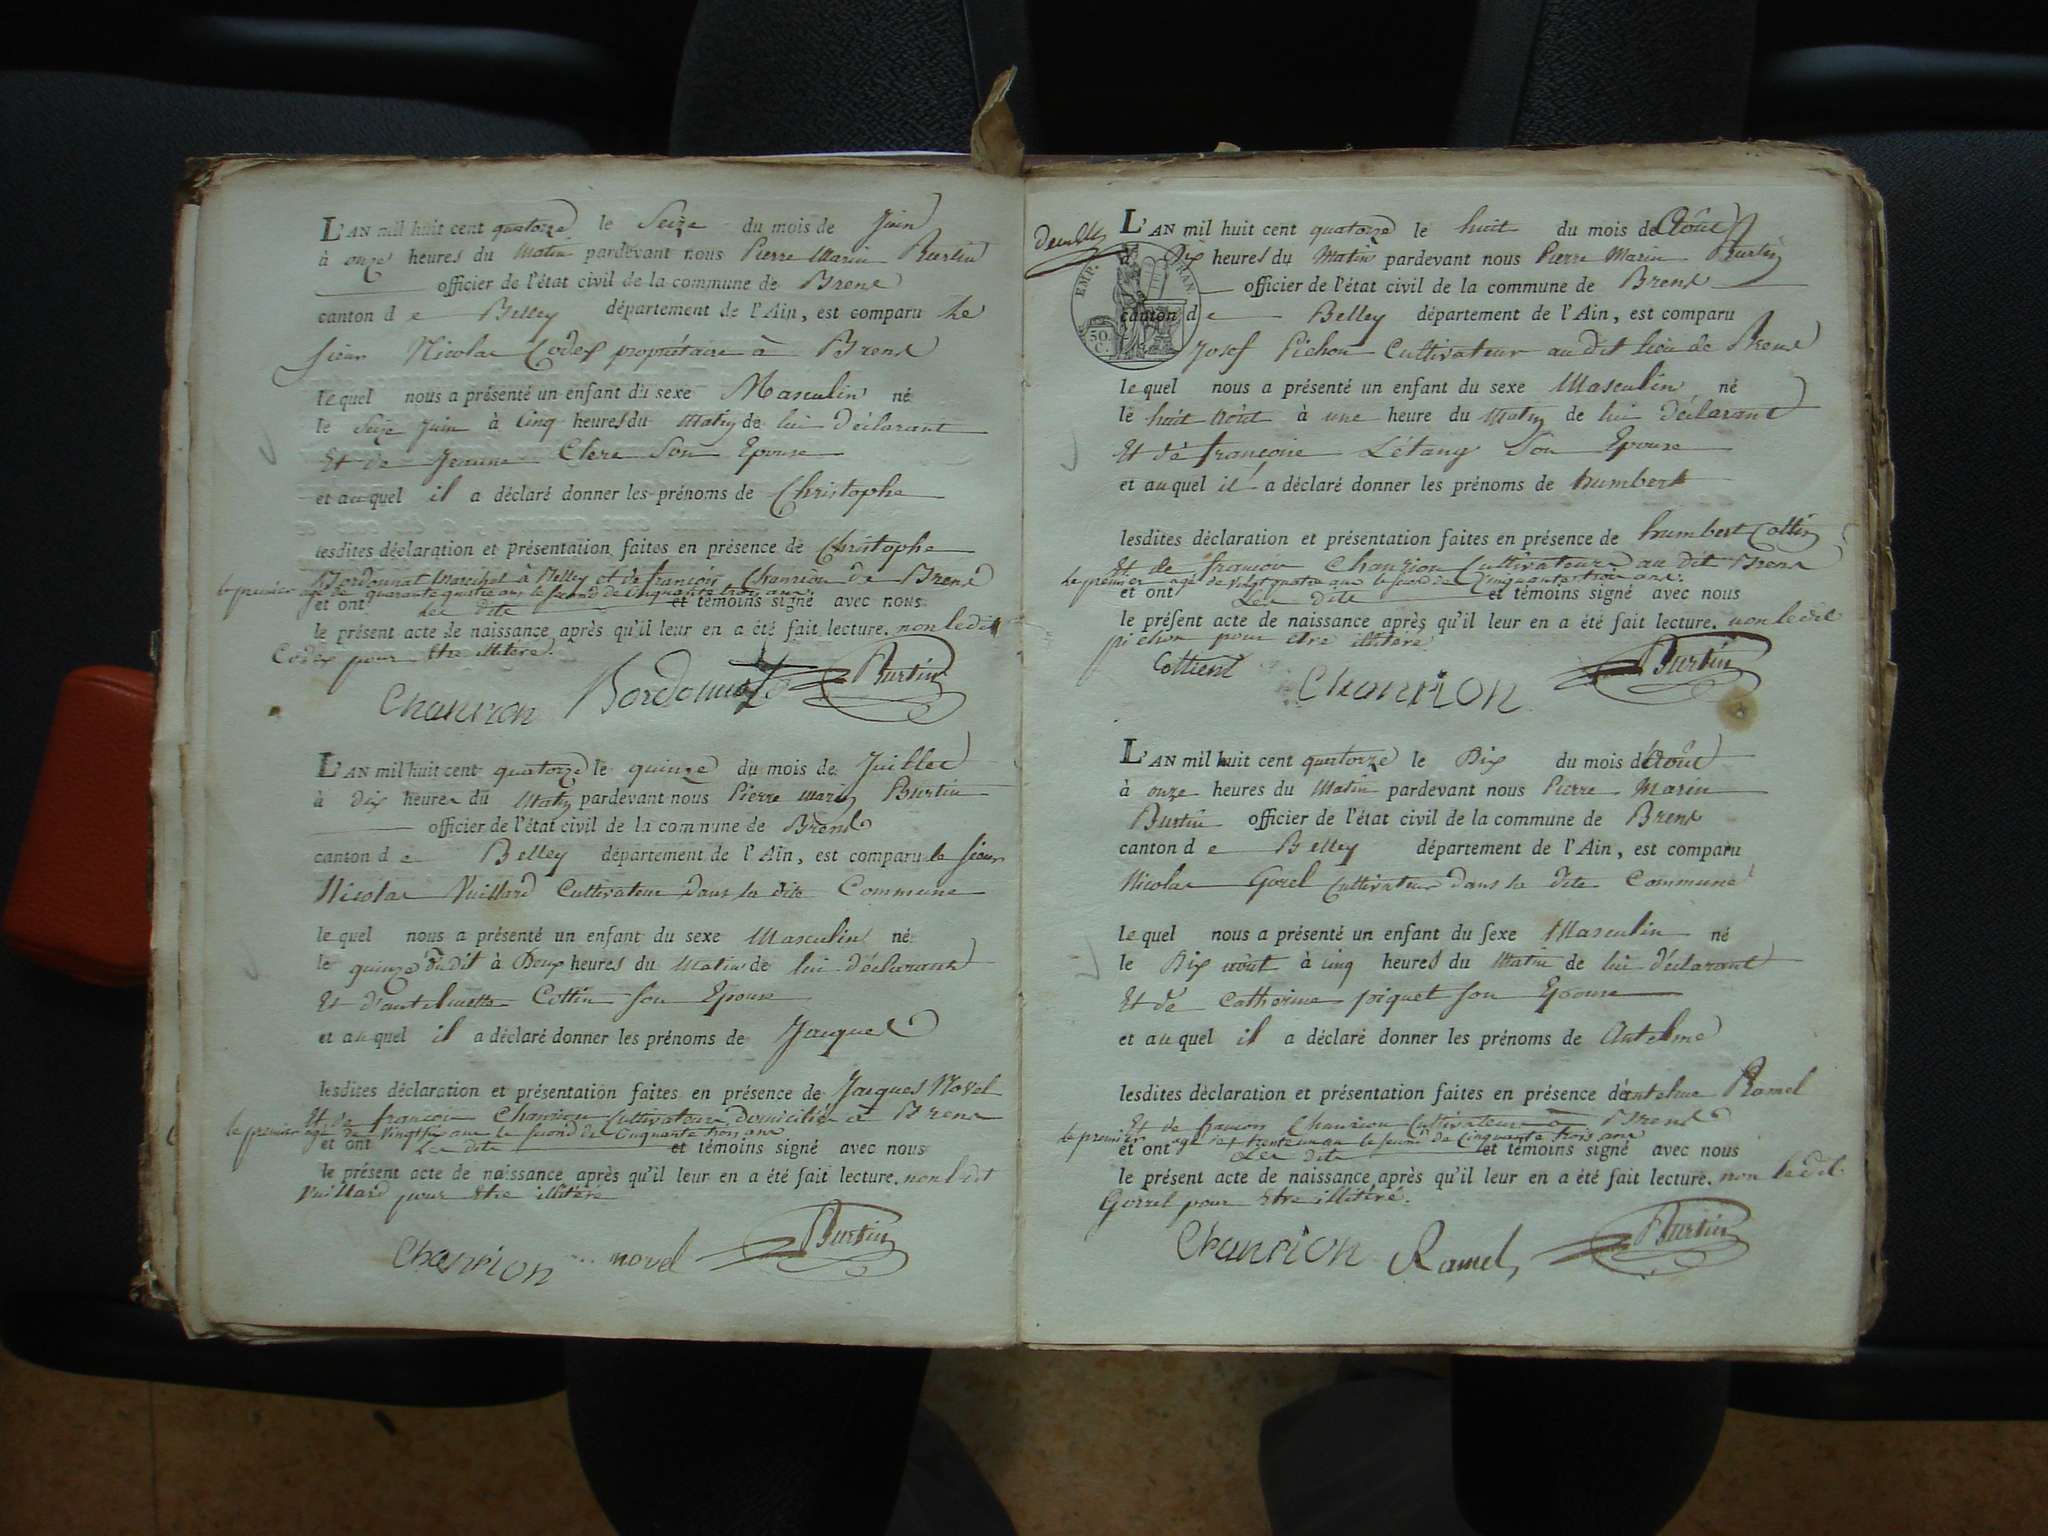 L'AN mil huit cent quatorze le Seize du mois de Juin
à onze heures du Matin pardevant nous Pierre Marin Burtin
officier de l'état civil de la commune de Brens
canton de Belley département de l'Ain, est comparu Le
sieur Nicolas Codex propriétaire à Brens
lequel nous a présenté un enfant du sexe Masculin né
le Seize Juin à Cinq heures du Matin de lui déclarant
Et de Jeanne Clere Son Epouse
et auquel il a déclaré donner les prénoms de Christophe
lesdites déclaration et présentation faites en présence de Christophe
Bordonnat Marechal à Belley et de françois Chanrion de Brens
le premier agé de quarante quatre ans le second de Cinquante trois ans
et ont les dits et témoins signé avec nous
le présent acte de naissance après qu'il leur en a été fait lecture. non ledit
Codex pour Etre illitéré.
Chanrion Bordonnat Burtin
L'AN mil huit cent quatorze le quinze du mois de Juillet
à dix heures du Matin pardevant nous Pierre Marin Burtin
officier de l'état civil de la commune de Brens
canton de Belley département de l'Ain, est comparu le sieur
Nicolas Vuillard Cultivateur dans la dite Commune
lequel nous a présenté un enfant du sexe Masculin né
le quinze du dit à Deux heures du Matin de lui déclarant
Et d'antelmette Cottin son Epouse
et auquel il a déclaré donner les prénoms de Jacques
lesdites déclaration et présentation faites en présence de Jacques Novel
Et de françois Chanrion Cultivateurs domiciliés à Brens
le premier agé de vingt six ans le second de Cinquante trois ans
et ont Les dits et témoins signé avec nous
le présent acte de naissance après qu'il leur en a été fait lecture. non ledit
Vuillard pour Etre illitéré
Chanrion novel Burtin
L'AN mil huit cent quatorze le huit du mois de Août
à Dix heures du Matin pardevant nous Pierre Marin Burtin
EMP. FRAN.
officier de l'état civil de la commune de Brens
canton de Belley département de l'Ain, est comparu
50 C.
Josef Pichon Cultivateur au dit lieu de Brens
lequel nous a présenté un enfant du sexe Masculin né
le huit Août à une heure du Matin de lui déclarant
Et de françoise Létang Son Epouse
et auquel il a déclaré donner les prénoms de humbert
lesdites déclaration et présentation faites en présence de humbert Cottin
Et de françois Chanrion Cultivateurs au dit Brens
le premier agé de vingt quatre ans le second de Cinquante trois ans.
et ont Les dits et témoins signé avec nous
le présent acte de naissance après qu'il leur en a été fait lecture. non le dit
pichon pour etre illitéré
Cottient Chanrion Burtin
L'AN mil huit cent quatorze le Dix du mois d'Août
à onze heures du Matin pardevant nous Pierre Marin
Burtin officier de l'état civil de la commune de Brens
canton de Belley département de l'Ain, est comparu
Nicolas Gorel Cultivateur dans la dite Commune
lequel nous a présenté un enfant du sexe Masculin né
le Dix août à cinq heures du Matin de lui déclarant
Et de Catherine piquet son Epouse
et auquel il a déclaré donner les prénoms de Antelme
lesdites déclaration et présentation faites en présence d'antelme Ramel
Et de françois Chanrion Cultivateurs à Brens
le premier agé de trente un an le second de Cinquante trois ans
et ont Les dits et témoins signé avec nous
le présent acte de naissance après qu'il leur en a été fait lecture. non ledit
Gorrel pour Etre illitéré.
Chanrion Ramel Burtin